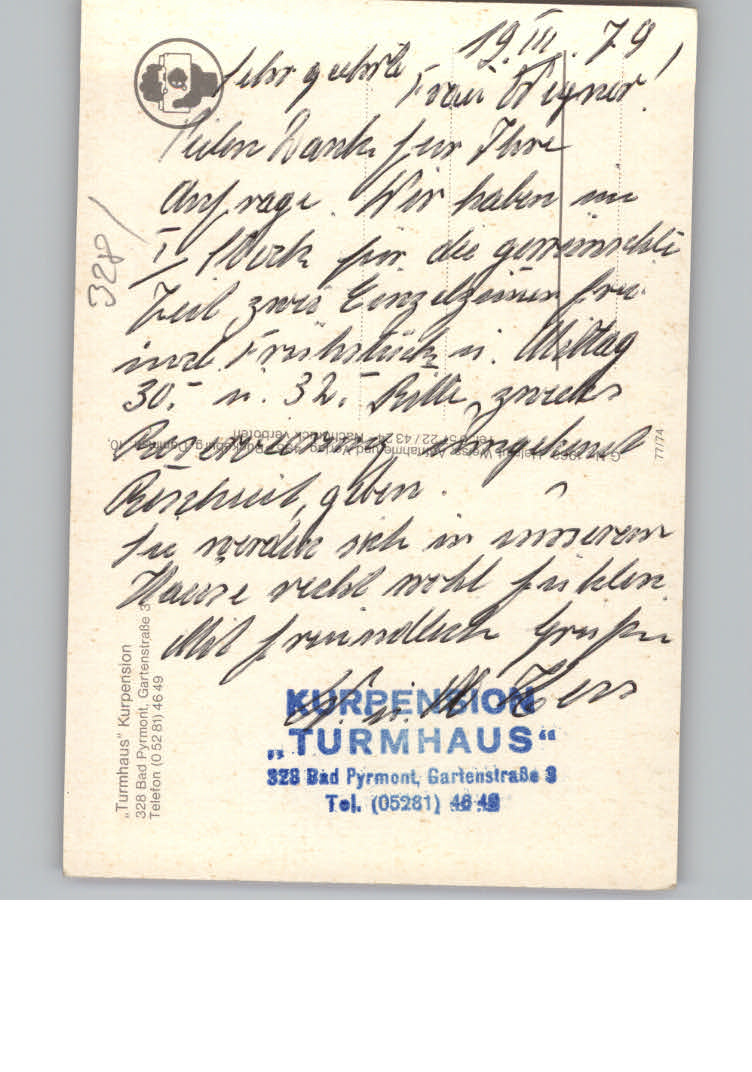 19. III. 79
Sehr geehrte
Frau Wegner!
Vielen Dank für Ihre
Anfrage. Wir haben im
I. Stock für die gewünschte
Zeit zwei Einzelzimmer frei
inkl. Frühstück u. Mittag
30,- u. 32,- Bitte, zwecks
Reservierung, umgehend
Bescheid, geben.
Sie werden sich in unserem
Hause recht wohl fühlen.
Mit freundlich Grüßen
KURPENSION
„TURMHAUS“
328 Bad Pyrmont, Gartenstraße 3
Tel. (05281) 46 49
328
„Turmhaus“ Kurpension
328 Bad Pyrmont, Gartenstraße 3
Telefon (0 52 81) 46 49
77/74